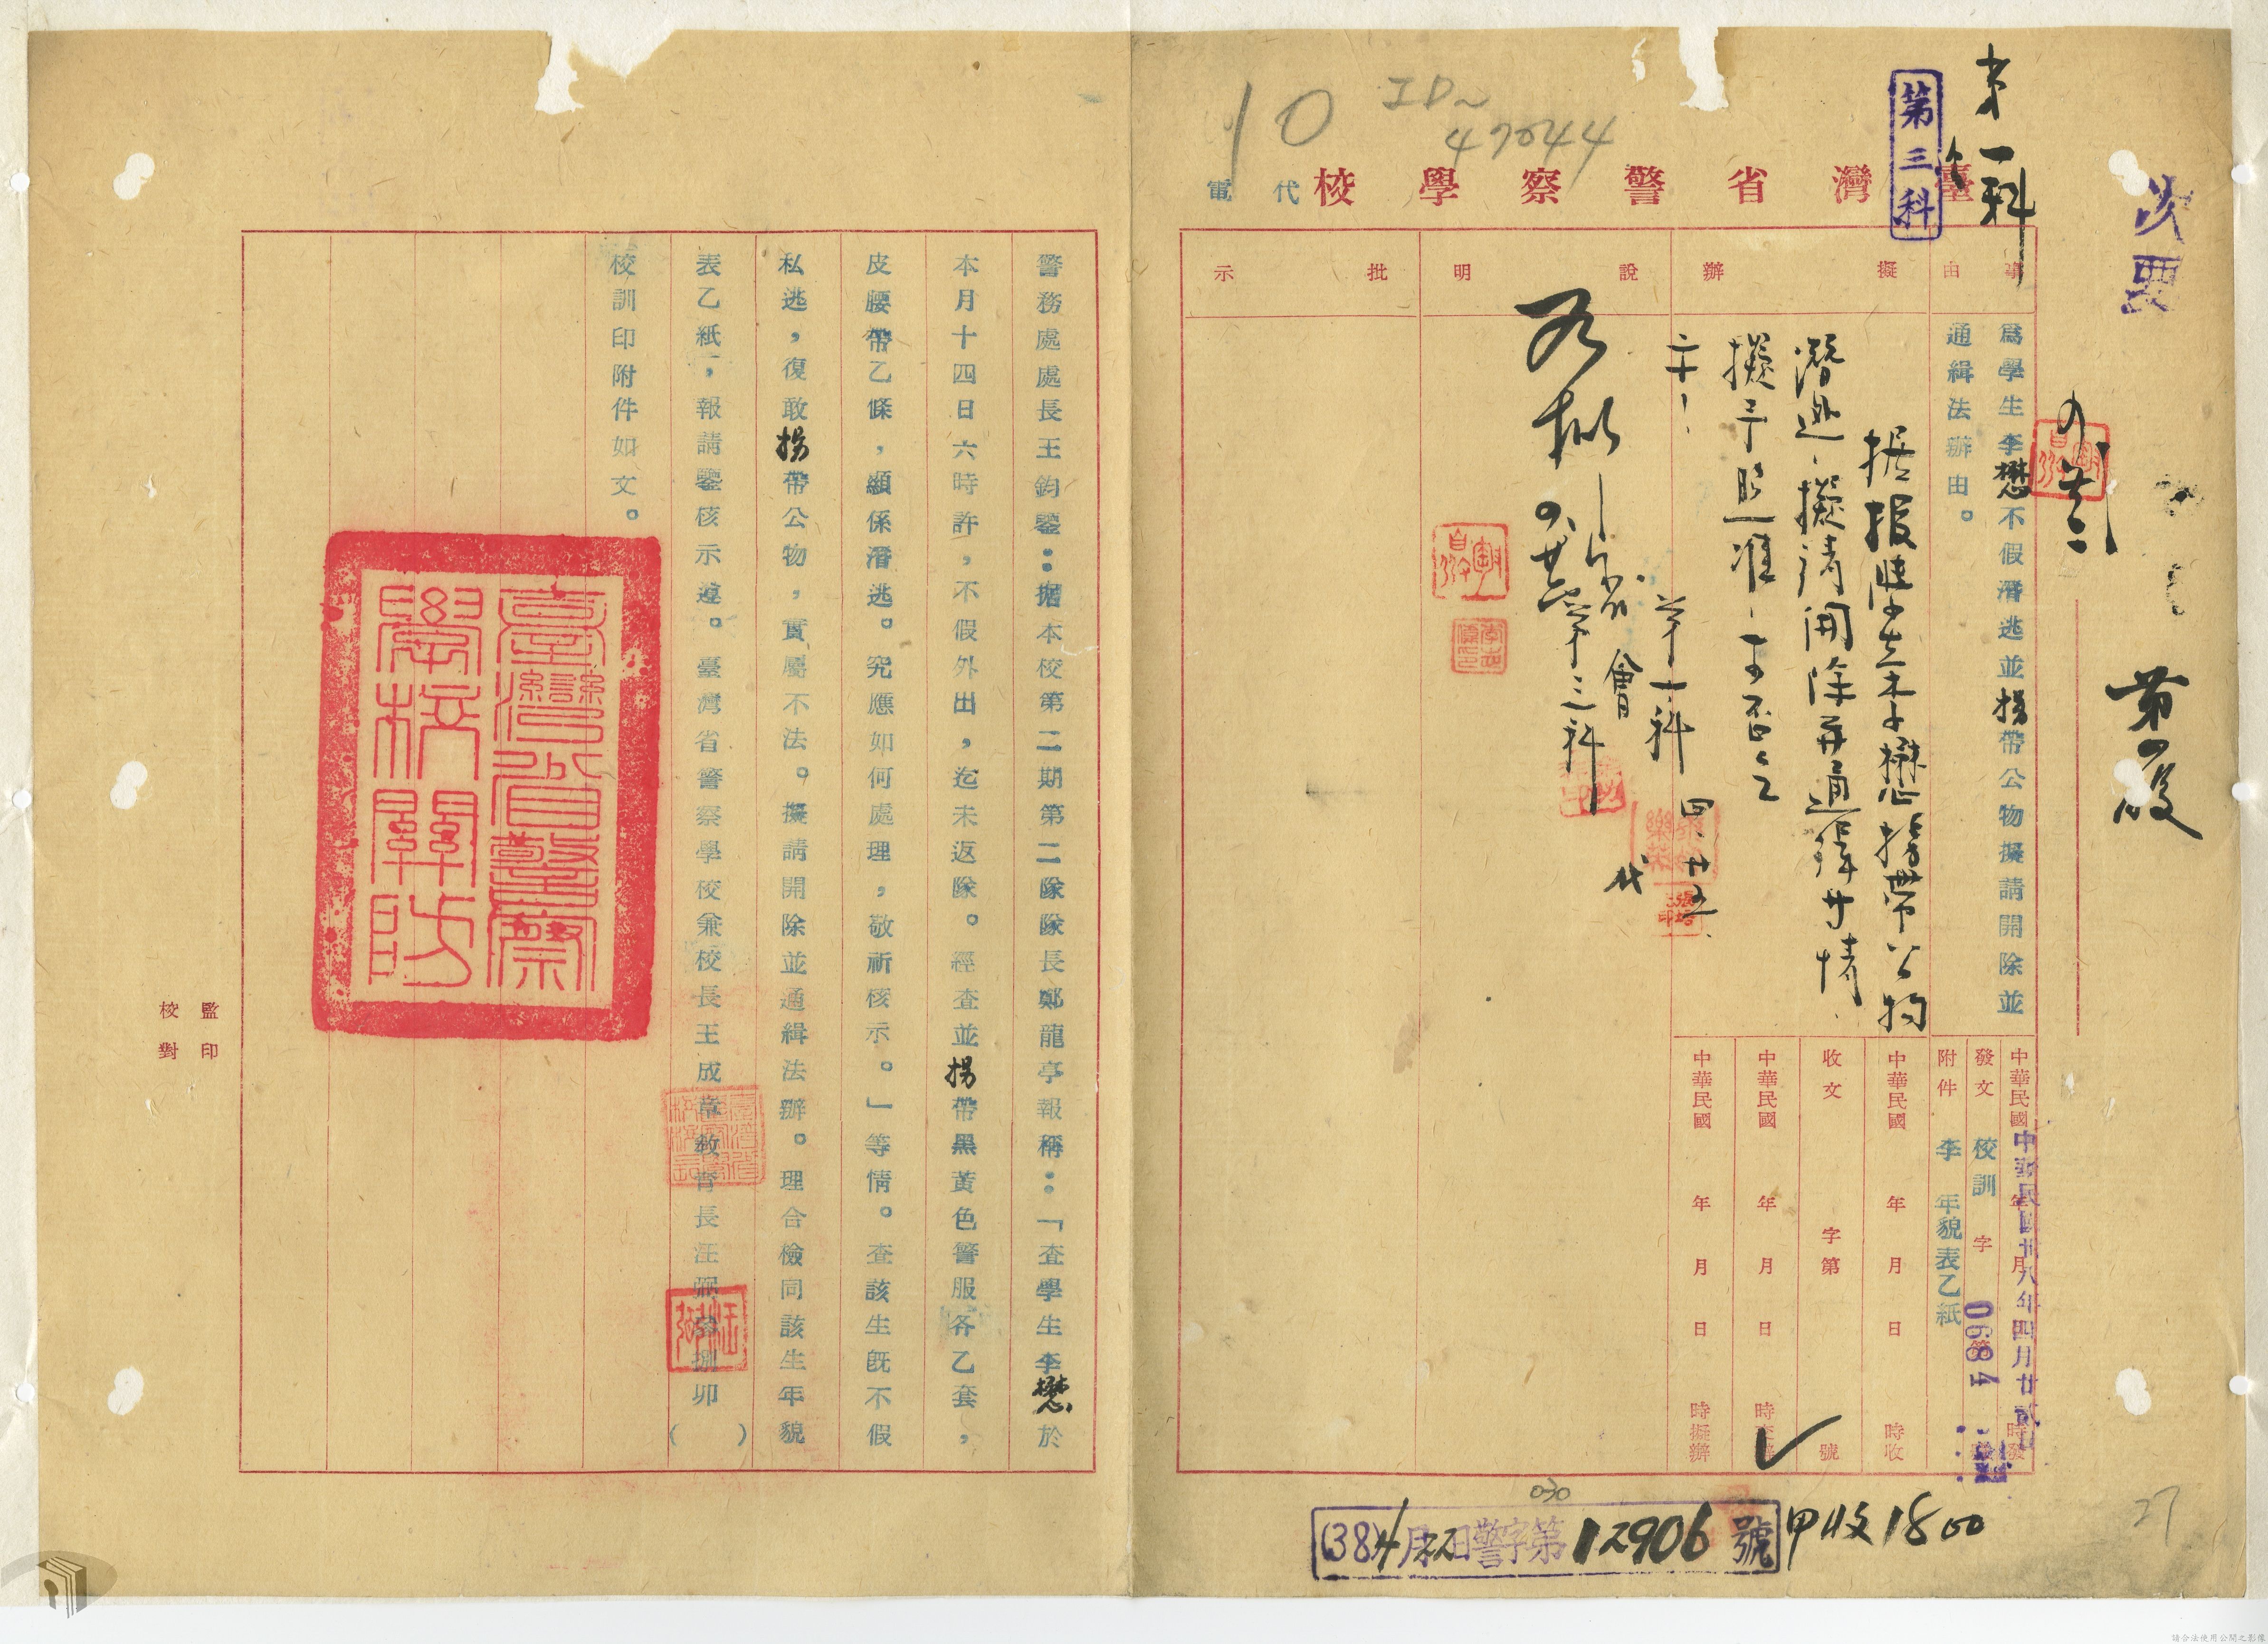 次要
第一科
第三科
10
ID~
47044
臺灣省警察學校
代電
事由
為學生李懋不假潛逃並拐帶公物擬請開除並
通緝法辦由。
擬辦
說明
批示
据报
李懋拐帶公物
擬請開除并通緝廿情
擬予照准
第一科
四、廿五、
會
第三科
代
如擬
中華民國 年 月 日 時發
中華民國卅八年四月廿貳日
發文 校訓 字第 0684 號
附件 李 年貌表乙紙
中華民國 年 月 日 時收
收文 字第 號
中華民國 年 月 日 時交辦
中華民國 年 月 日 時擬辦
030
(38)4月22日警字第12906號
甲收1800
27
警務處處長王鈞鑒：據本校第二期第二隊隊長鄭龍亭報稱：「查學生李懋於
本月十四日六時許，不假外出，迄未返隊。經查並拐帶黑黃色警服各乙套，
皮腰帶乙條，顯係潛逃。究應如何處理，敬祈核示。」等情。查該生既不假
私逃，復敢拐帶公物，實屬不法。擬請開除並通緝法辦。理合檢同該生年貌
表乙紙，報請鑒核示遵。臺灣省警察學校兼校長王成章教育長汪 捌卯（ ）
校訓印附件如文。
臺灣省警察學校關防
監印
校對
請合法使用公開之影像